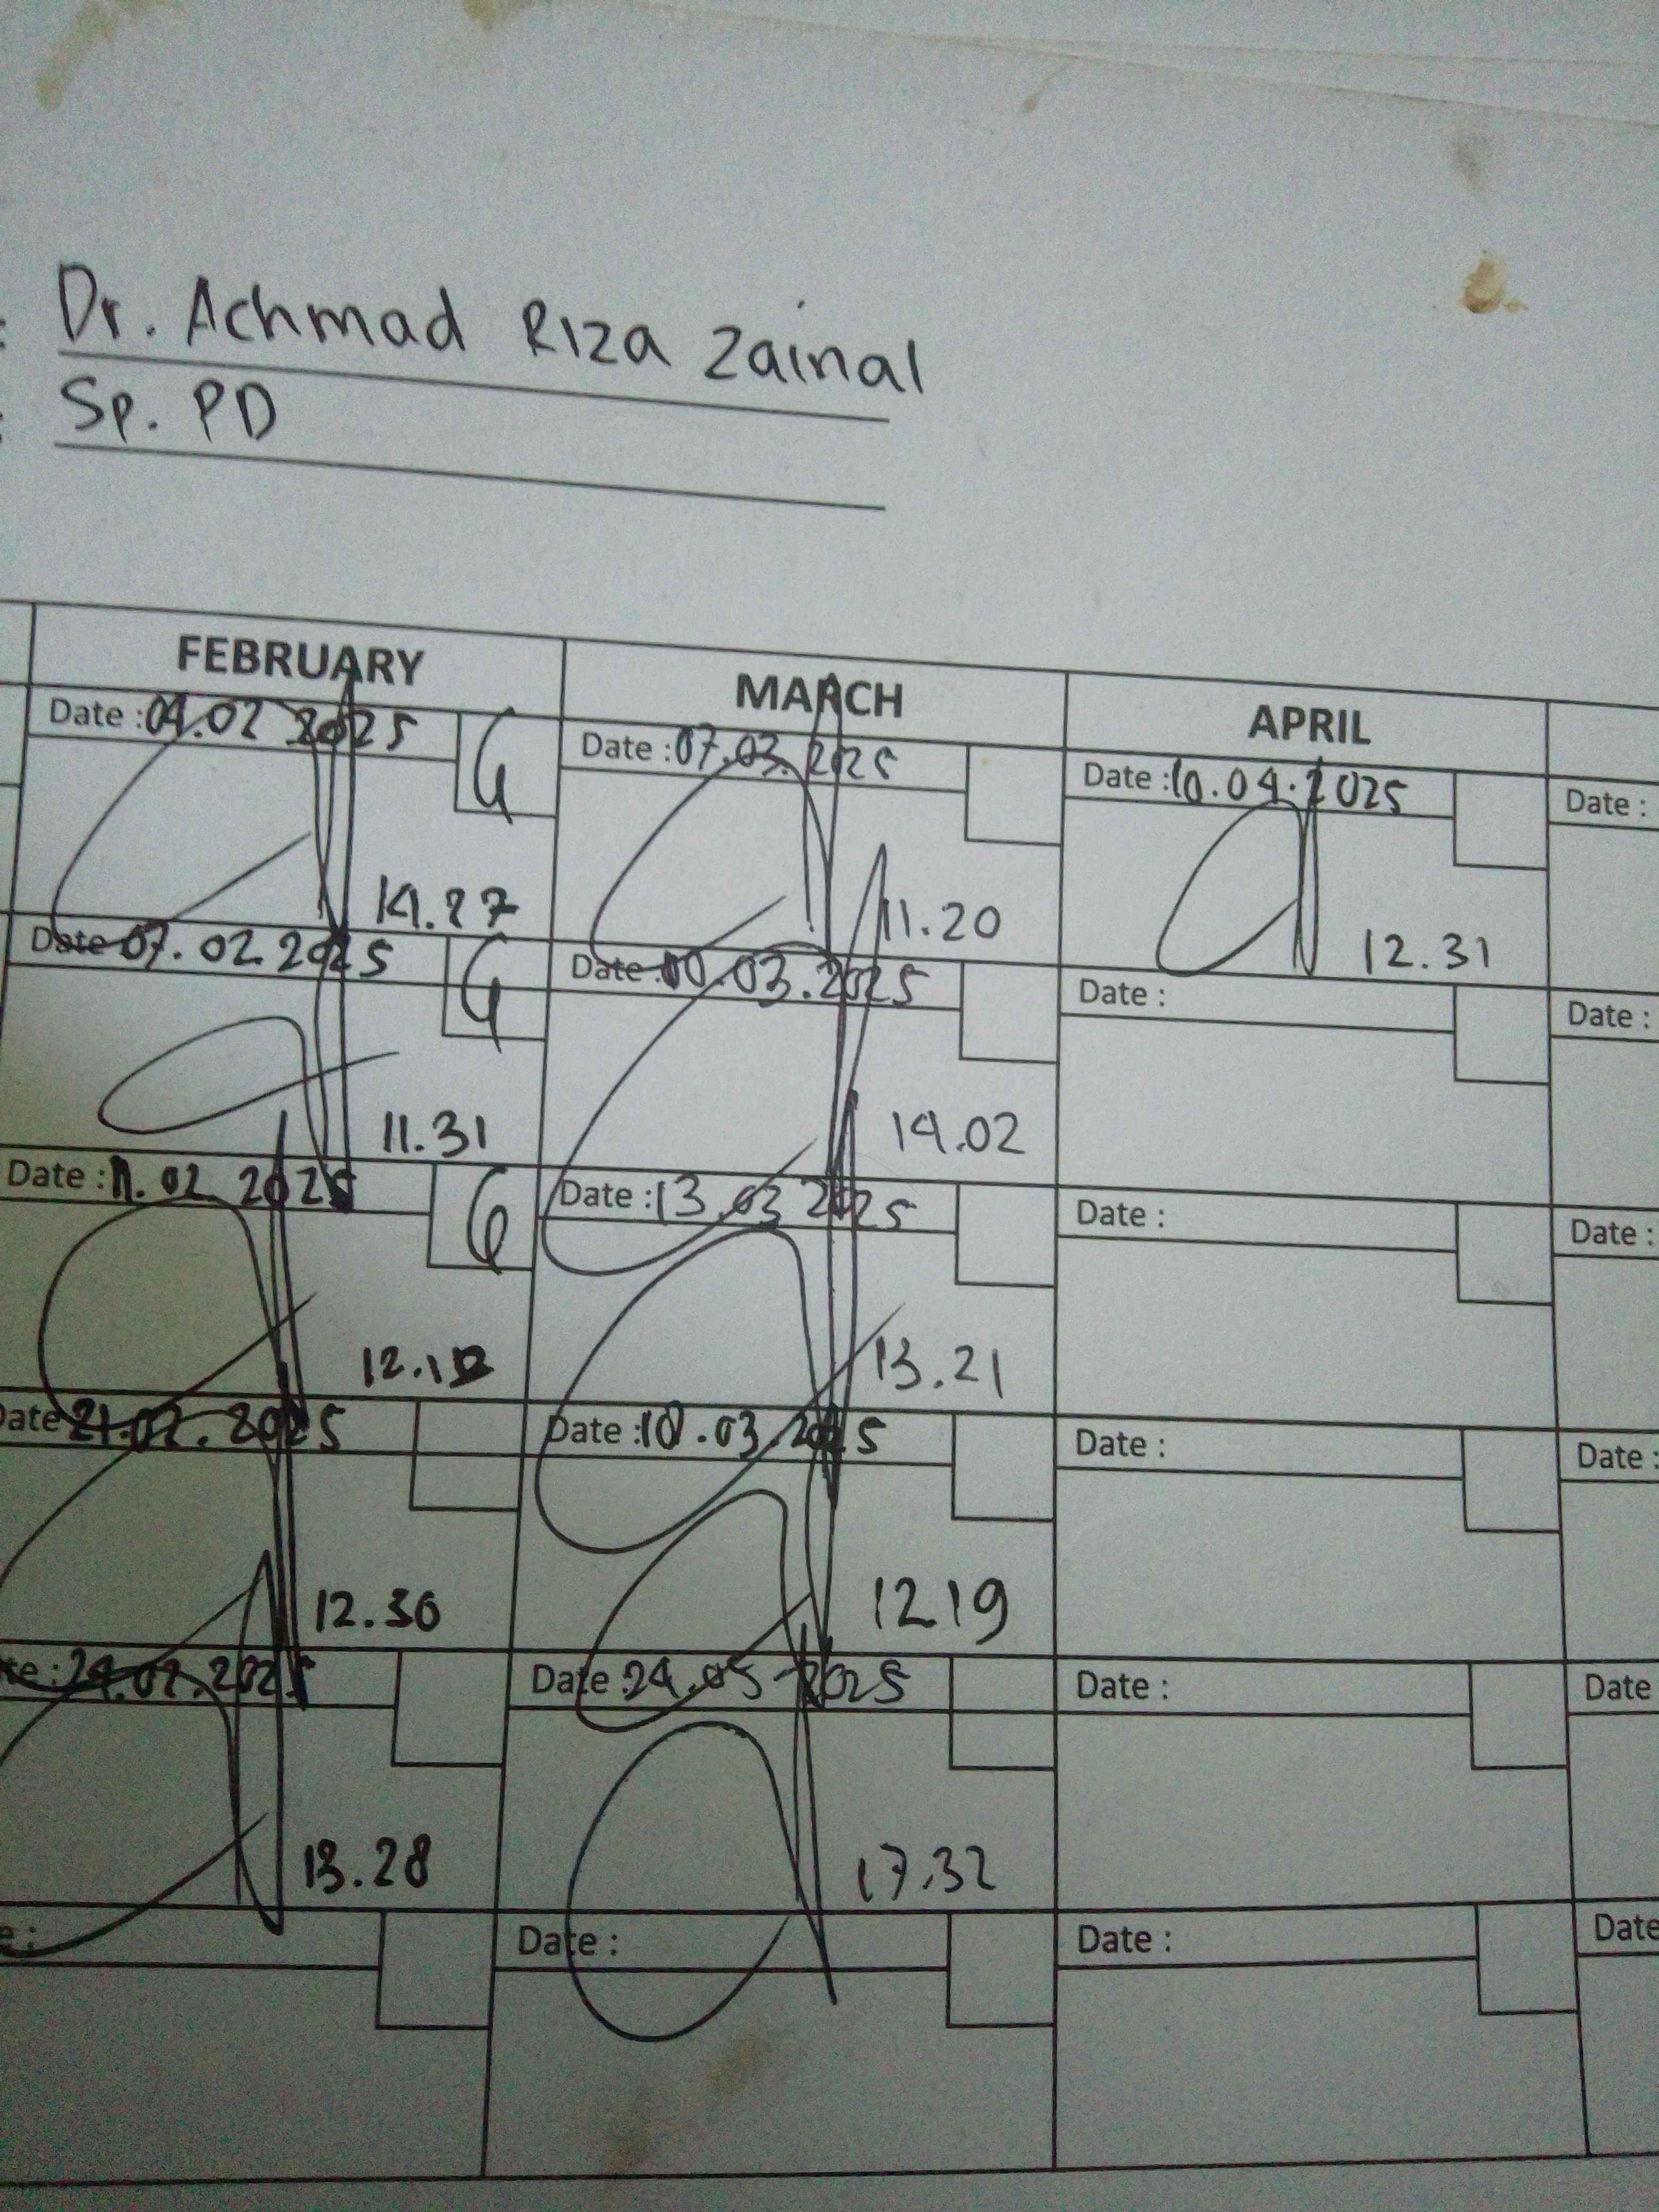 : Dr. Achmad Riza Zainal
: Sp. PD
FEBRUARY MARCH APRIL
Date : 04.02 2025 Date : 07.03.2025 Date : 10.04.2025 Date :
14.27 11.20 12.31
Date 07.02.2025 Date .03.2025 Date : Date :
11.31 14.02
Date : 11.02 2025 Date : 13.03 2025 Date : Date :
12. 13.21
Date 21.02.2025 Date : .03.2025 Date : Date :
12.30 12 19
te : 24.02.2025 Date 24.03 2025 Date : Date
13.28 17.32
e : Date : Date : Date